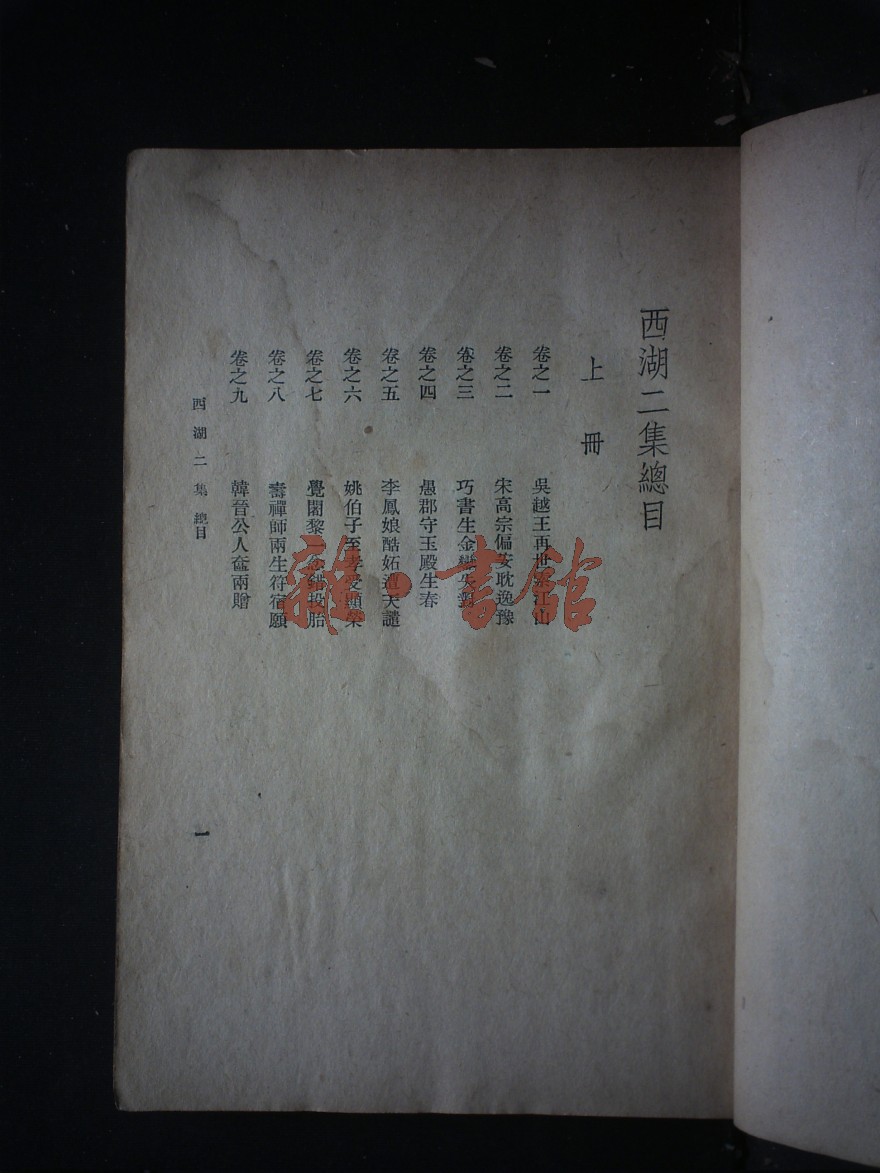 西湖二集總目
上冊
卷之一 吳越王再世索江山
卷之二 宋高宗偏安耽逸豫
卷之三 巧書生金鑾失對
卷之四 愚郡守玉殿生春
卷之五 李鳳娘酷妬遭天譴
卷之六 姚伯子至孝受顯榮
卷之七 覺闍黎一念錯投胎
卷之八 壽禪師兩生符宿願
卷之九 韓晉公人奩兩贈
西湖二集 總目
一
雜·書館